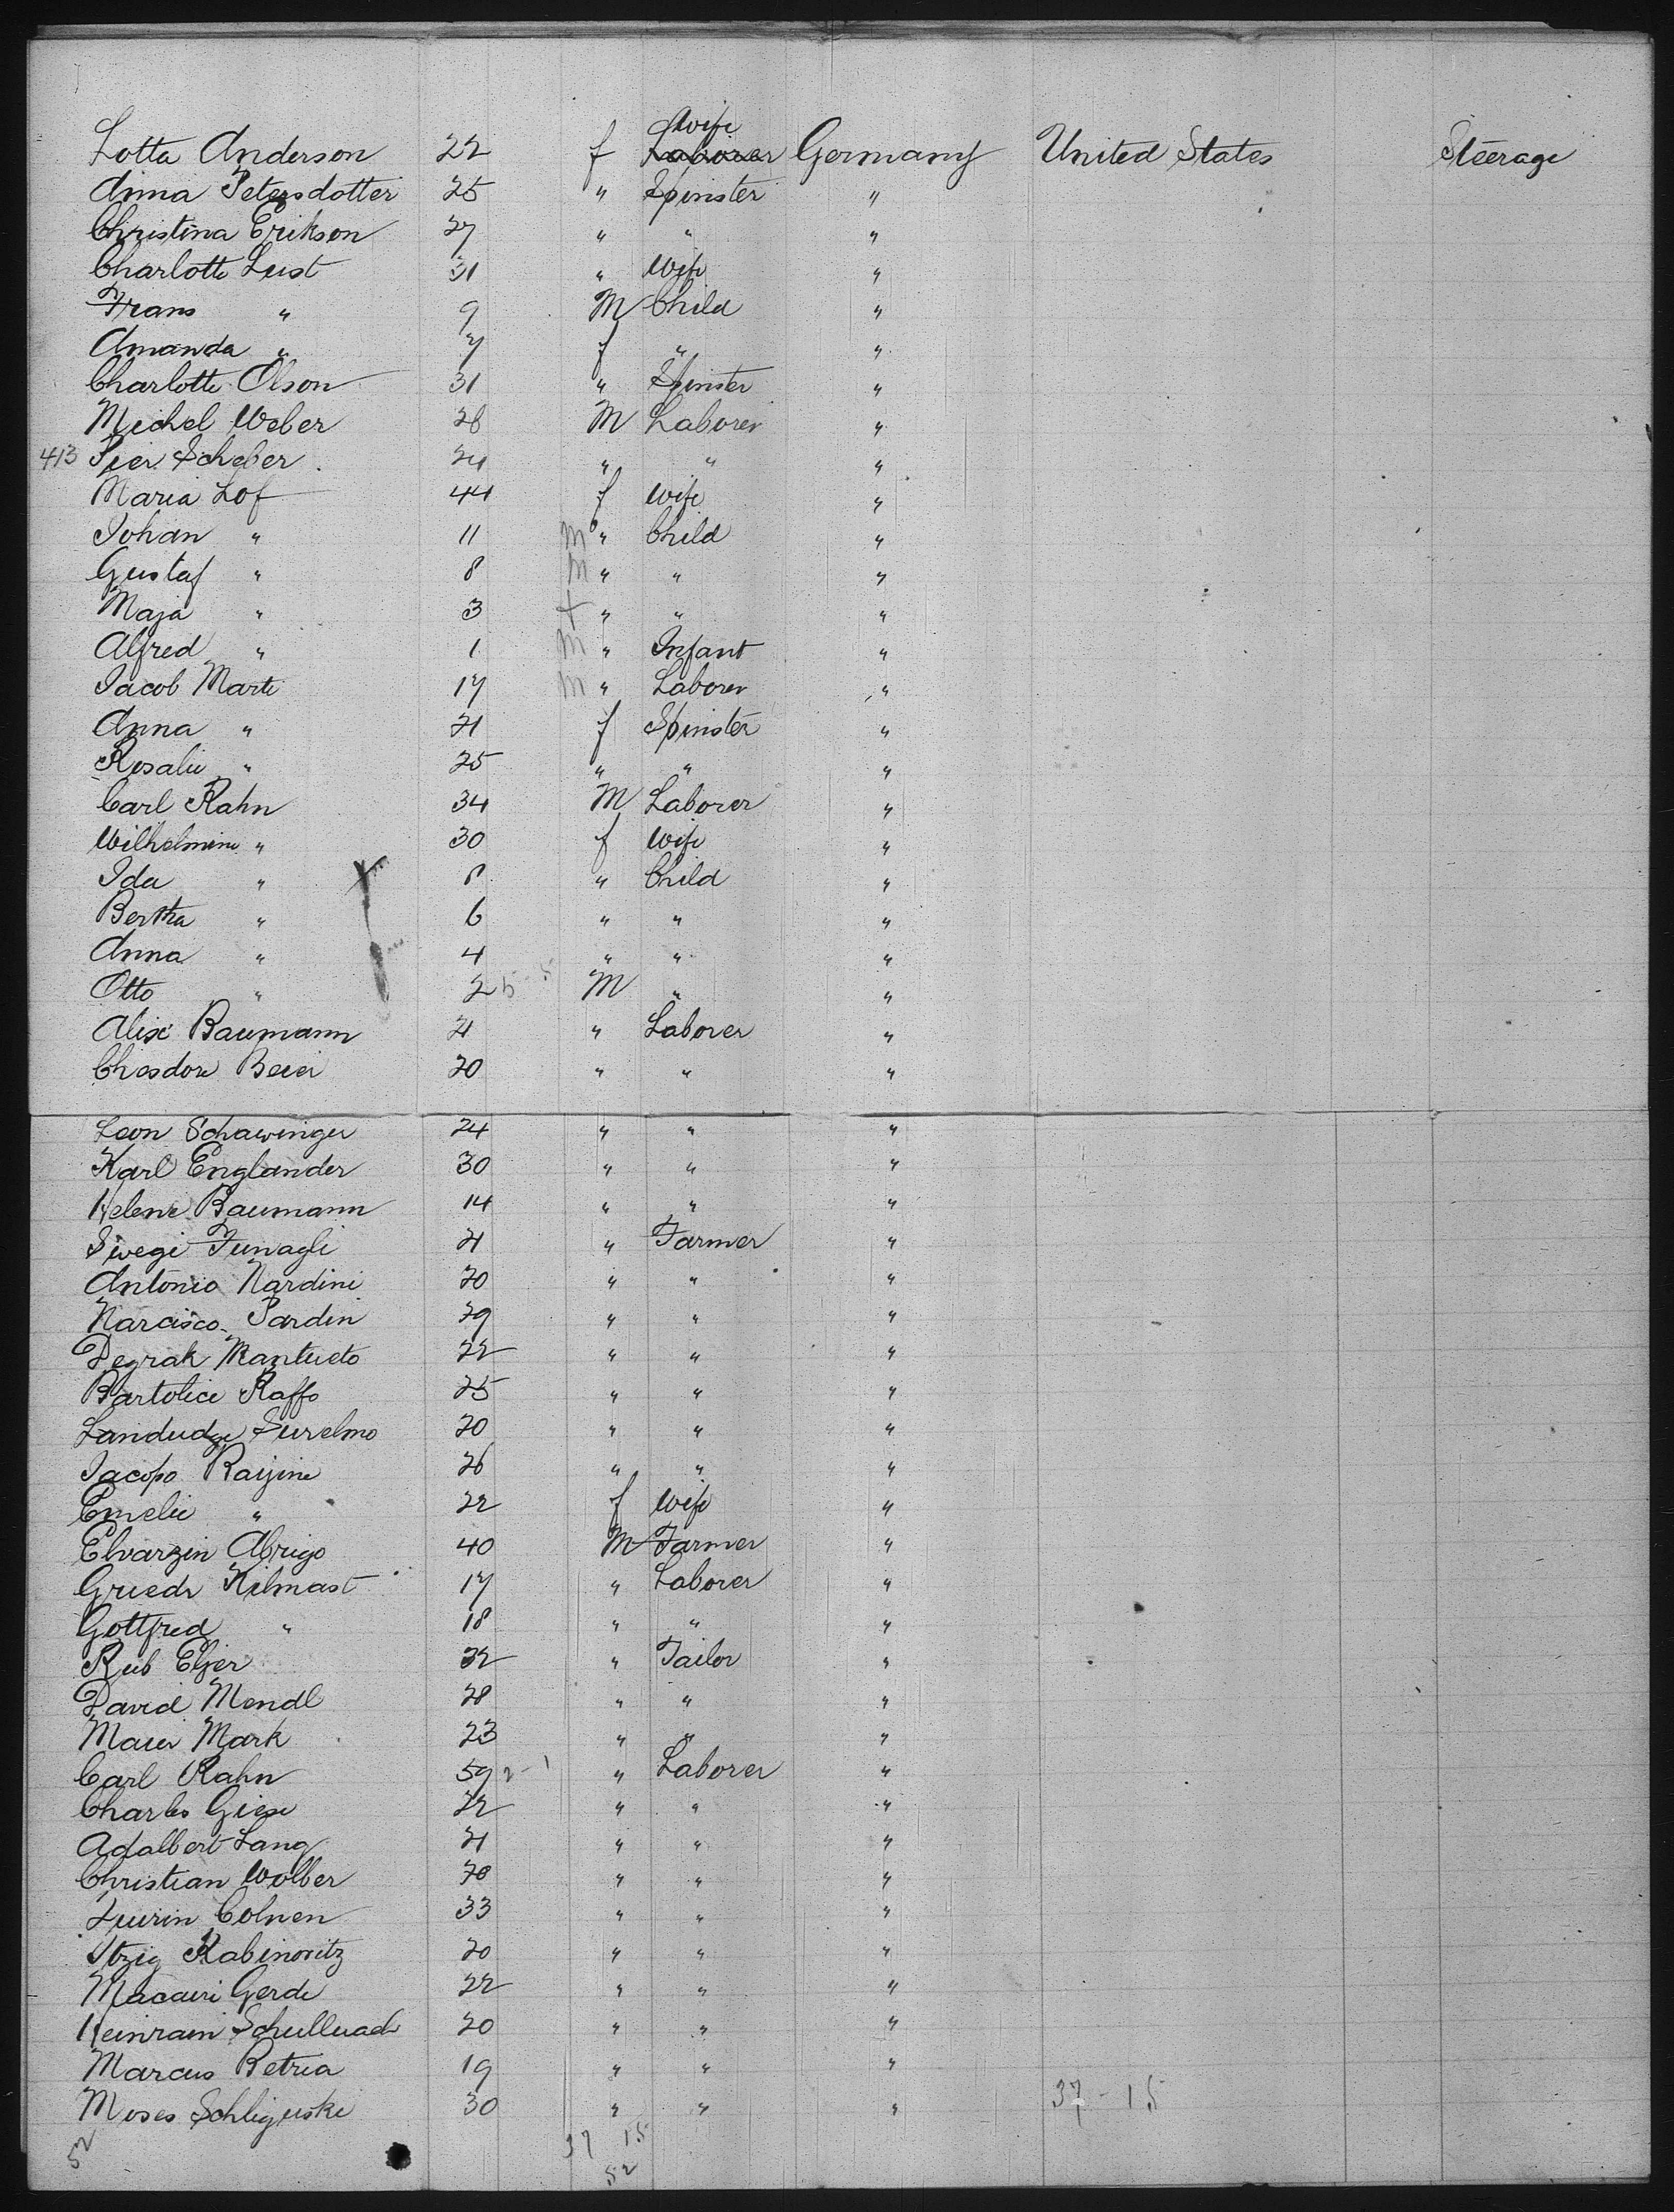 Wife
Lotta Anderson 22 f Laborer Germany United States Steerage
Anna Petersdotter 25 " Spinster "
Christina Erikson 27 " " "
Charlotte Lust 31 " Wife "
Frans " 9 M Child "
Amanda " 7 f " "
Charlotte Olson 31 " Spinster "
Michel Weber 28 M Laborer "
413 Pier Scheber 24 " " "
Maria Lof 44 f Wife "
Johan " 11 M " Child "
Gustaf " 8 M " " "
Maja " 3 f " " "
Alfred " 1 M " Infant "
Jacob Marti 17 M " Laborer "
Anna " 21 f Spinster "
Rosalie " 25 " " "
Carl Rahn 34 M Laborer "
Wilhelmine " 30 f Wife "
Ida " 8 " Child "
Bertha " 6 " " "
Anna " 4 " " "
Otto " 2 5-5 M " "
Alise Baumann 21 " Laborer "
Chesdore Beier 20 " " "
Leon Schawinger 24 " " "
Karl Englander 30 " " "
Helene Baumann 14 " " "
21 " Farmer "
Antonio Nardini 20 " " "
Narcisco Pardin 29 " " "
Degrak Mantueto 22 " " "
Bartolice Raffo 25 " " "
20 " " "
Jacopo 26 " " "
Emelie " 22 f Wife "
Elvarzin Abrigo 40 M Farmer "
Kilmast 17 " Laborer "
Gottfred " 18 " " "
Rub Eljer 32 " Tailor "
David Mendl 28 " " "
Maier Mark 23 " " "
Carl Rahn 59 2-1 " Laborer "
Charles Giese 22 " " "
Adalbert Lang 21 " " "
Christian Wolber 20 " " "
Colnen 33 " " "
Itzig Rabinovitz 20 " " "
Macairi Gerde 22 " " "
20 " " "
Marcus Betria 19 " " "
Moses Schliguski 30 " " " 37-15
52 37 15
52